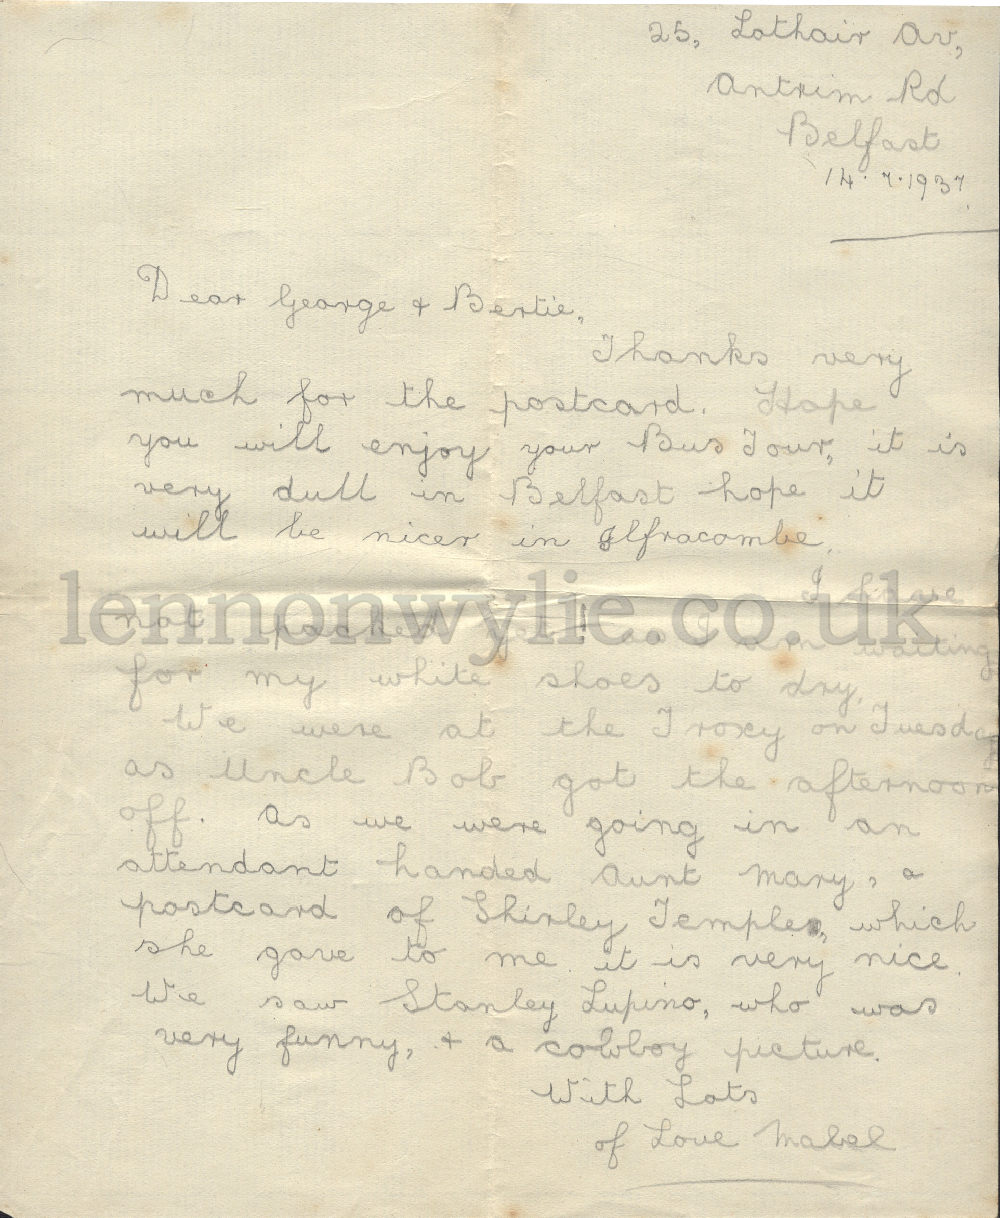 25, Lothair Av,
Antrim Rd
Belfast
14.7.1937.
Dear George & Bertie,
Thanks very
much for the postcard. Hope
you will enjoy your Bus Tour, it is
very dull in Belfast hope it
will be nicer in Ilfracombe.
I have
lennonwylie.co.uk
not packed yet! as I am waiting
for my white shoes to dry.
We were at the Troxy on Tuesday
as Uncle Bob got the afternoon
off. As we were going in an
attendant handed Aunt Mary, a
postcard of Shirley Temple, which
she gave to me it is very nice.
We saw Stanley Lupino, who was
very funny, & a cowboy picture.
With Lots
of Love Mabel